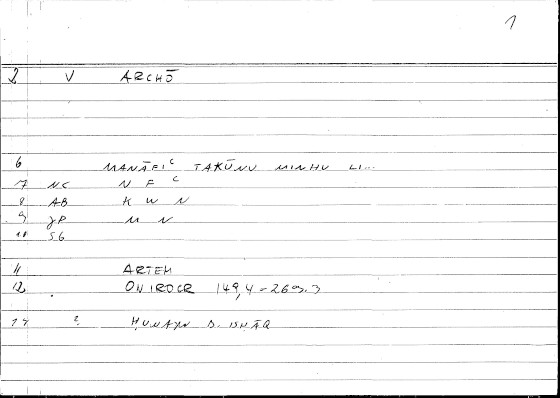 1
2 V ARCHŌ
6 MANĀFIʿ TAKŪNU MINHU LI...
7 NC N F ʿ
8 AB K W N
9 JP M N
10 SG
11 ARTEM
12 ONIROCR 149,4 =
14 ? ḤUNAYN B. ISḤĀQ